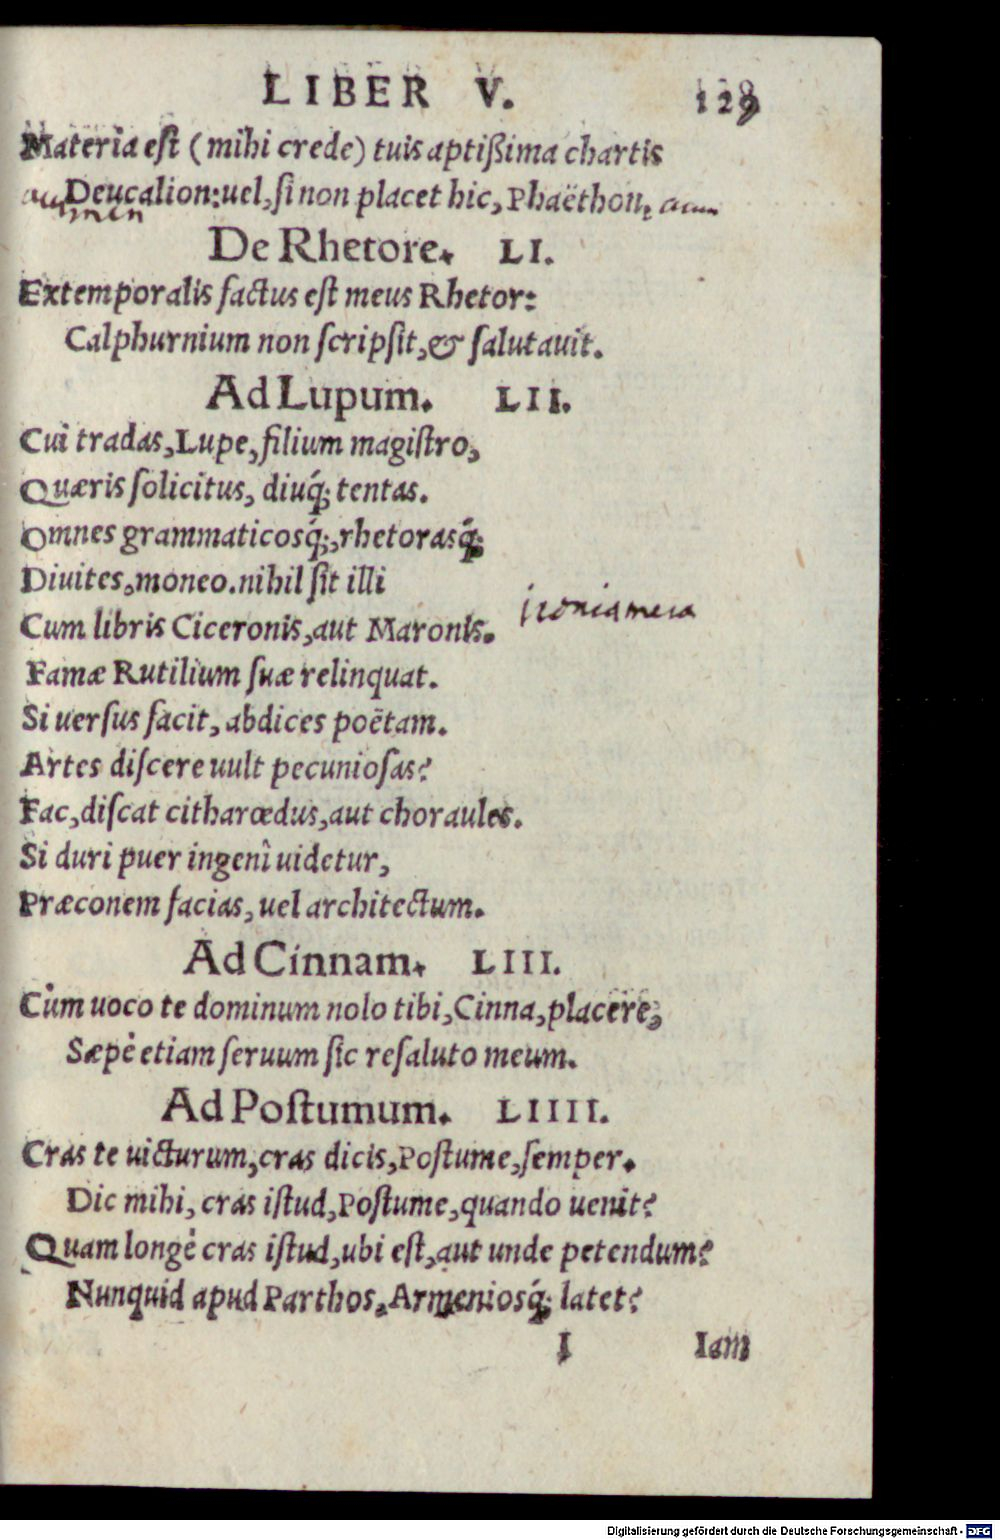 LIBER V. 129
Materia est (mihi crede) tuis aptißima chartis
Deucalion: uel, si non placet hic, Phaëthon.
De Rhetore. LI.
Extemporalis factus est meus Rhetor:
Calphurnium non scripsit, & salutauit.
Ad Lupum. LII.
Cui tradas, Lupe, filium magistro,
Quæris solicitus, diuq́; tentas.
Omnes grammaticosq́;, rhetorasq́;
Diuites, moneo. nihil sit illi
ironia mera
Cum libris Ciceronis, aut Maronis.
Famæ Rutilium suæ relinquat.
Si uersus facit, abdices poëtam.
Artes discere uult pecuniosas?
Fac, discat citharœdus, aut choraules.
Si duri puer ingenî uidetur,
Præconem facias, uel architectum.
Ad Cinnam. LIII.
Cùm uoco te dominum nolo tibi, Cinna, placere,
Sæpè etiam seruum sic resaluto meum.
Ad Postumum. LIIII.
Cras te uicturum, cras dicis, Postume, semper.
Dic mihi, cras istud, Postume, quando uenit?
Quam longè cras istud, ubi est, aut unde petendum?
Nunquid apud Parthos, Armeniosq́; latet?
I Iam
Digitalisierung gefördert durch die Deutsche Forschungsgemeinschaft - DFG